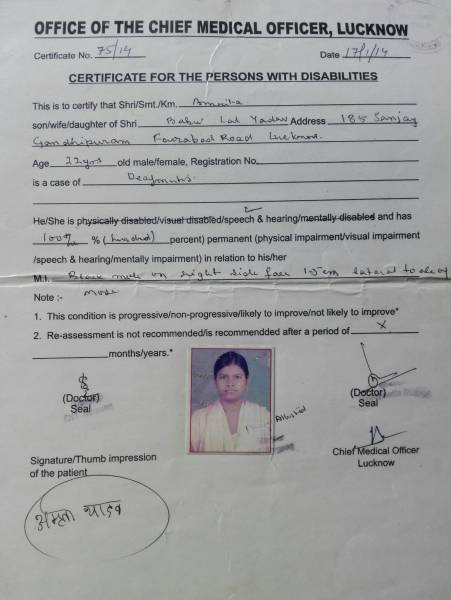 OFFICE OF THE CHIEF MEDICAL OFFICER, LUCKNOW
Certificate No. 75/14 Date 17/1/14
CERTIFICATE FOR THE PERSONS WITH DISABILITIES
This is to certify that Shri/Smt./Km.
son/wife/daughter of Shri Babu Lal Yadav Address 185 Sanjay
Gandhipuram Faizabad Road Lucknow.
Age 22 yrs old male/female, Registration No.
is a case of
He/She is physically disabled/visual disabled/speech & hearing/mentally disabled and has
100% % (hundred) percent) permanent (physical impairment/visual impairment
/speech & hearing/mentally impairment) in relation to his/her
M.I. Black mole on right side face lateral to ala of
Note :- nose
1. This condition is progressive/non-progressive/likely to improve/not likely to improve*
2. Re-assessment is not recommended/is recommendded after a period of x
months/years.*
(Doctor) (Doctor)
Seal Seal
Attested
Signature/Thumb impression Chief Medical Officer
of the patient Lucknow
अमृता यादव